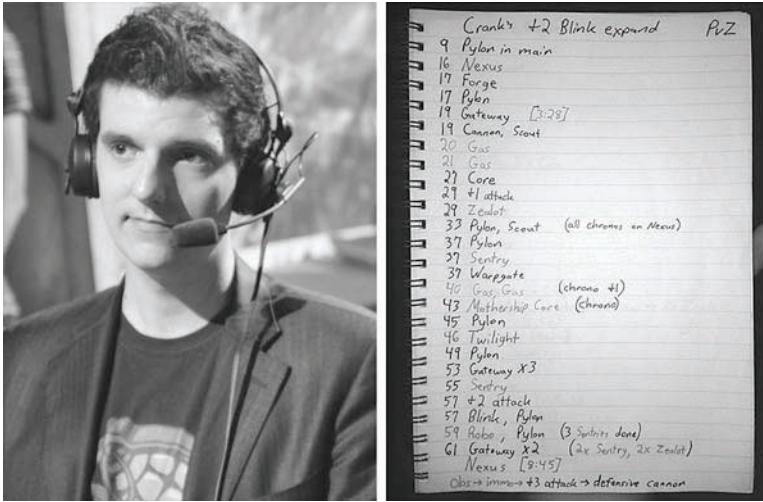 Crank's +2 Blink expand PvZ
9 Pylon in main
16 Nexus
17 Forge
17 Pylon
19 Gateway [3:28]
19 Cannon, Scout
20 Gas
21 Gas
27 Core
29 +1 attack
29 Zealot
33 Pylon, Scout (all chronos on Nexus)
37 Pylon
37 Sentry
37 Warpgate
40 Gas, Gas (chrono +1)
43 Mothership Core (chrono)
45 Pylon
46 Twilight
49 Pylon
53 Gateway x3
55 Sentry
57 +2 attack
57 Blink, Pylon
59 Robo, Pylon (3 Sentries done)
61 Gateway x2 (2x Sentry, 2x Zealot)
Nexus [8:45]
Obs → immo → +3 attack → defensive cannon